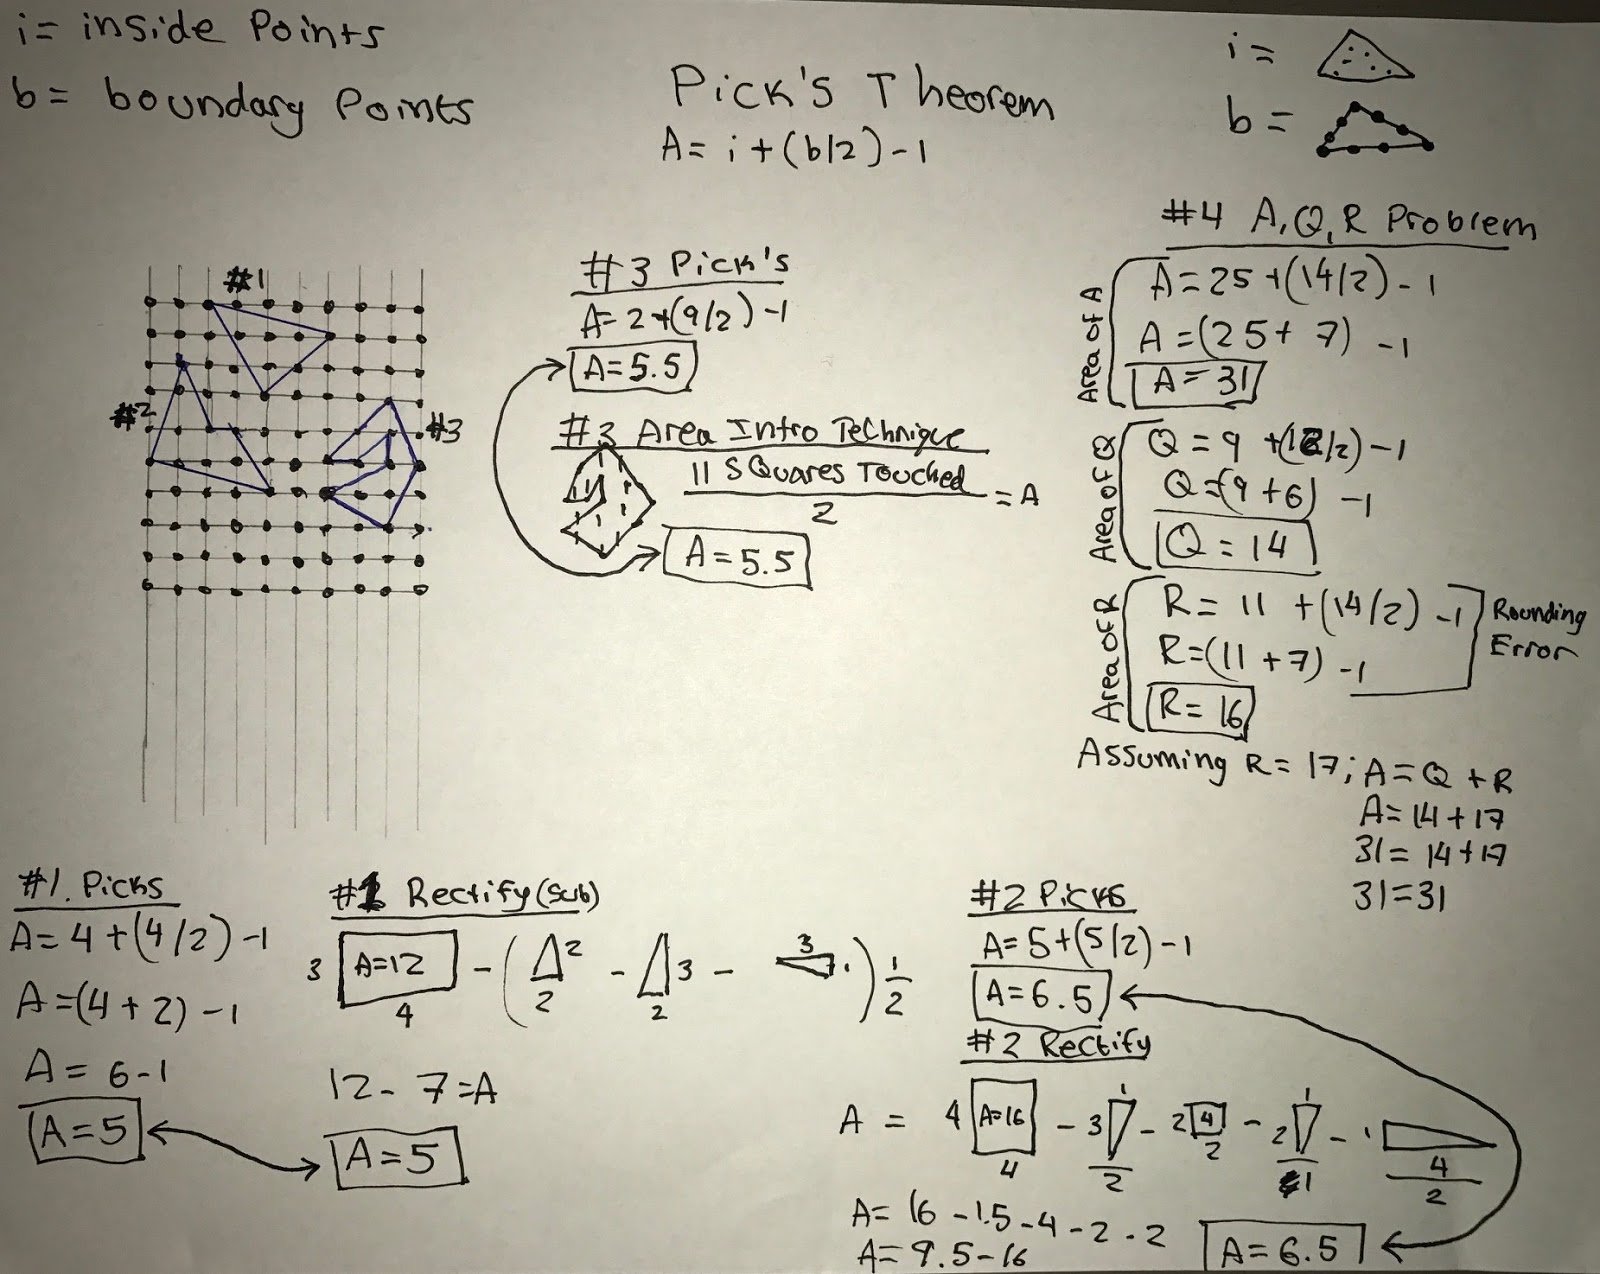 i= inside Points
b= boundary Points
Pick's Theorem
A= i+(b/2)-1
i=
b=
#1
#2
#3
#3 Pick's
A= 2+(9/2)-1
A=5.5
#3 Area Intro Technique
11 SQuares Touched
2
= A
A=5.5
#4 A,Q,R Problem
Area of A
A=25+(14/2)-1
A=(25+7)-1
A=31
Area of Q
Q=9+(12/2)-1
Q=(9+6)-1
Q=14
Area of R
R= 11 +(14/2)-1
R=(11+7)-1
R=16
Rounding
Error
Assuming R= 17; A=Q+R
A=14+17
31=14+17
31=31
#1. Picks
A=4+(4/2)-1
A=(4+2)-1
A= 6-1
A=5
#1 Rectify(sub)
3 A=12 4 - ( 2 2 - 3 2 - 3 1 ) 1/2
12- 7=A
A=5
#2 Picks
A=5+(5/2)-1
A=6.5
#2 Rectify
A = 4 A=16 4 - 3 1 2 - 2 4 2 - 2 1 1 - 1 4 2
A= 16 -1.5-4-2-2
A= 9.5-16
A=6.5